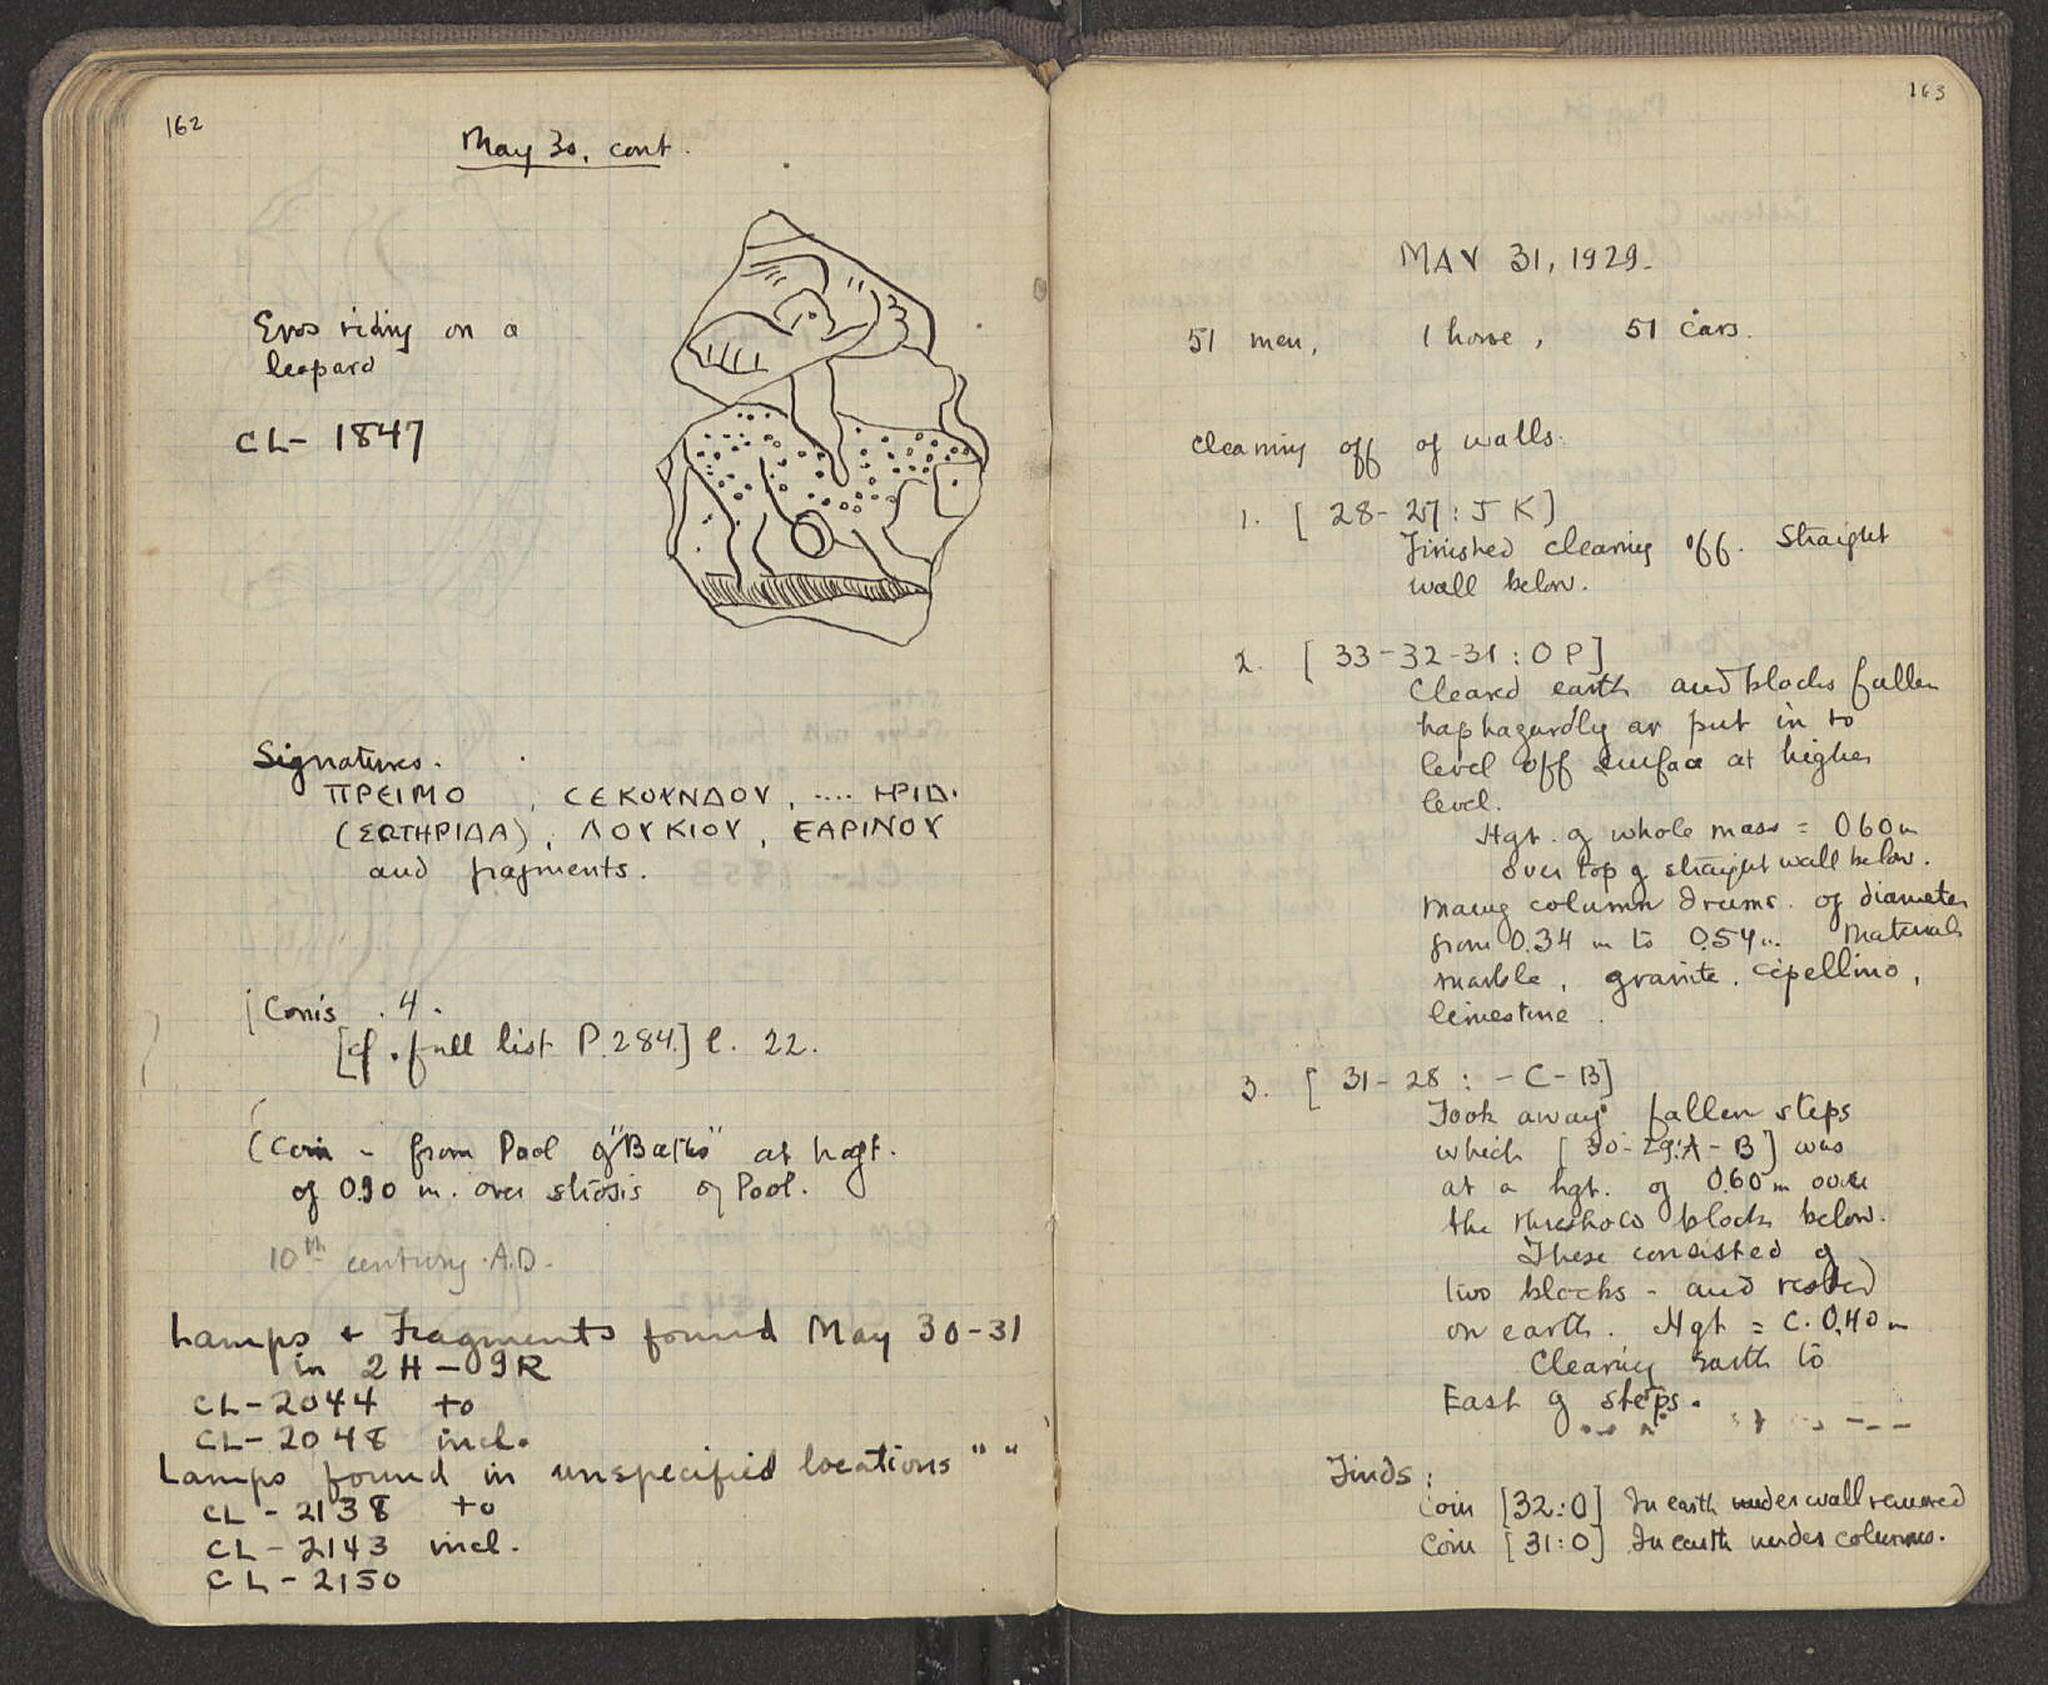 162
May 30, cont.
Eros riding on a
leopard
CL- 1847
Signatures.
ΠΡΕΙΜΟ , CEKOYNΔOY, .... ΗΡΙΔ.
(ΣΩΤΗΡΙΔΑ), ΛΟΥΚΙΟΥ, ΕΑΡΙΝΟΥ
and fragments.
Coins . 4.
[cf. full list P. 284.] l. 22.
(Coin - from Pool of "Baths" at hgt.
of 0.90 m. over strosis of Pool.
10th century A.D.
Lamps + Fragments found May 30-31
in 2H - 9R
CL-2044 to
CL-2048 incl.
Lamps found in unspecified locations " "
CL - 2138 to
CL - 2143 incl.
CL - 2150
163
MAY 31, 1929.
51 men, 1 horse, 51 cars.
Clearing off of walls.
1. [ 28- 27 : J K]
Finished clearing off. Straight
wall below.
2. [ 33-32-31 : O P]
Cleared earth and blocks fallen
haphazardly or put in to
level off surface at higher
level.
Hgt. of whole mass = 0.60 m
over top of straight wall below.
Many column drums. of diameter
from 0.34 m to 0.54 m. Materials
marble, granite, cipellino,
limestone.
3. [ 31- 28 : - C - B]
Took away fallen steps
which [30-29:A - B] was
at a hgt. of 0.60 m over
the threshold blocks below.
These consisted of
two blocks - and rested
on earth. Hgt = c. 0.40 m
Clearing earth to
East of steps.
Finds:
Coin [32:O] In earth under wall removed
Coin [31:O] In earth under columns.